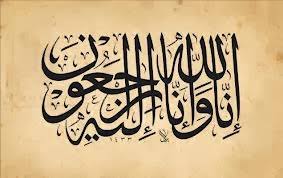 إِنَّا لِلَّهِ وَإِنَّا إِلَيْهِ رَاجِعُونَ
١٤٣٣